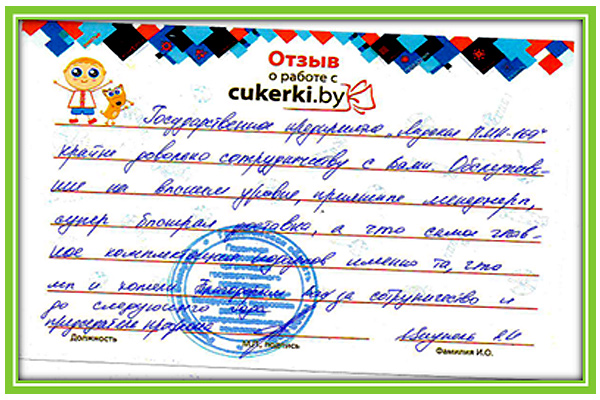 Отзыв
о работе с
cukerki.by
Государственное предприятие ПМК-
крайне довольно сотрудничеству с вами. Обслужива-
ние на высшем уровне, приятные менеджера,
супер быстрая доставка, а что самое глав-
ное комплектация подарков именно та, что
мы и хотели Благодарим Вас за сотрудничество и
до следующего
председатель профкома
Должность
М.П., подпись
Фамилия И.О.